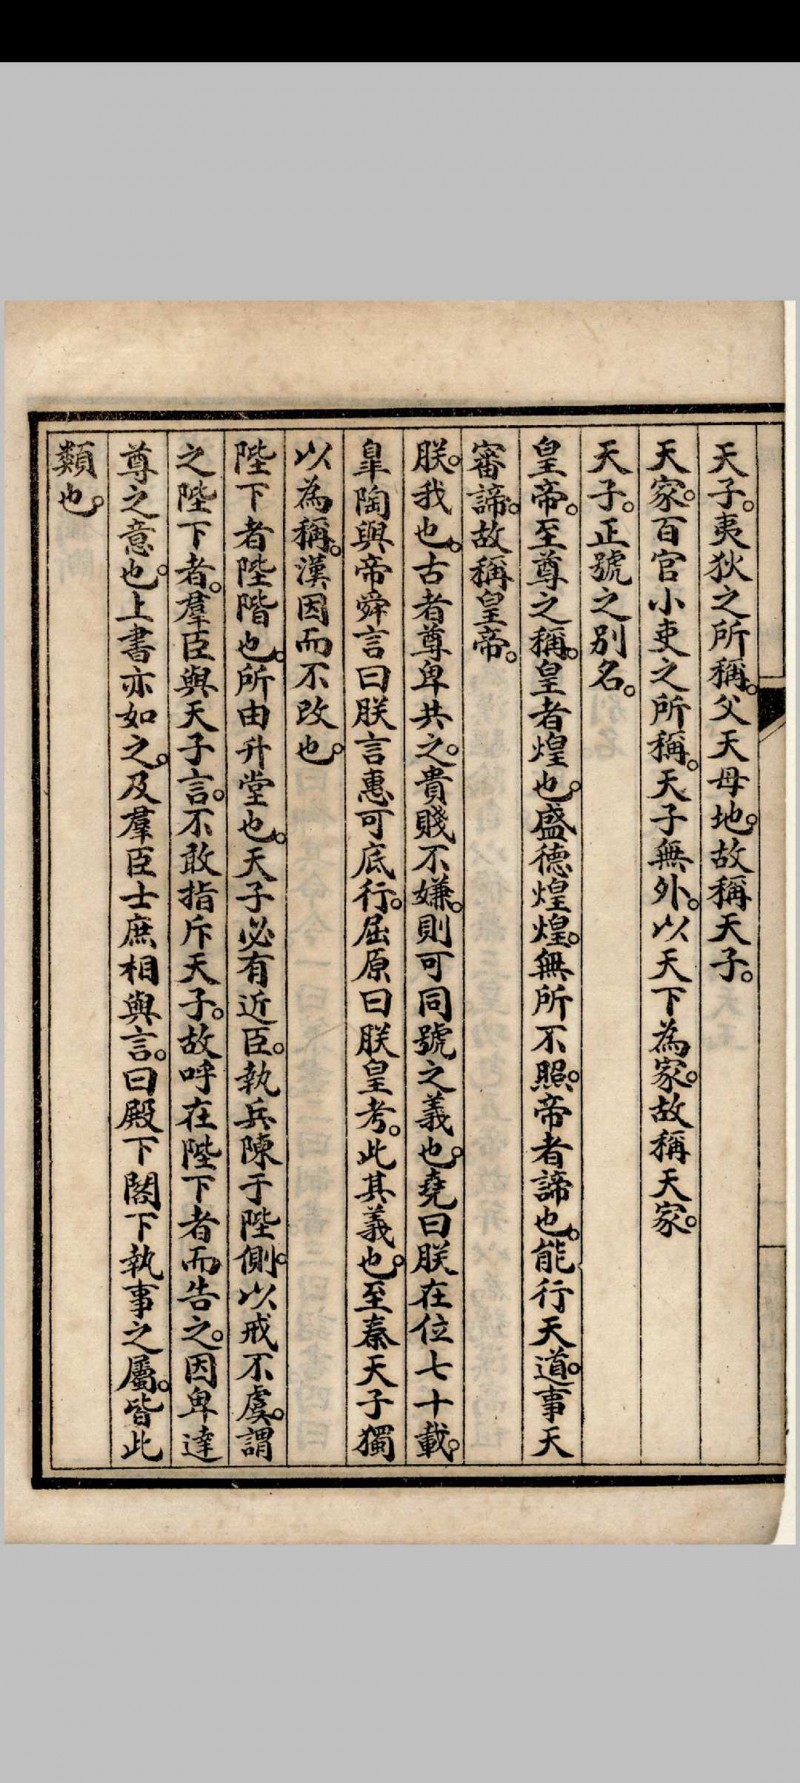 天子。夷狄之所稱。父天母地。故稱天子。
天家。百官小吏之所稱。天子無外。以天下為家。故稱天家。
天子。正號之別名。
皇帝。至尊之稱。皇者煌也。盛德煌煌。無所不照。帝者諦也。能行天道。事天
審諦。故稱皇帝。
朕。我也。古者尊卑共之。貴賤不嫌。則可同號之義也。堯曰朕在位七十載。
皐陶與帝舜言曰朕言惠可底行。屈原曰朕皇考。此其義也。至秦天子獨
以為稱。漢因而不改也。
陛下者陛階也。所由升堂也。天子必有近臣。執兵陳于陛側。以戒不虞。謂
之陛下者。羣臣與天子言。不敢指斥天子。故呼在陛下者而告之。因卑達
尊之意也。上書亦如之。及羣臣士庶相與言。曰殿下閤下執事之屬。皆此
類也。